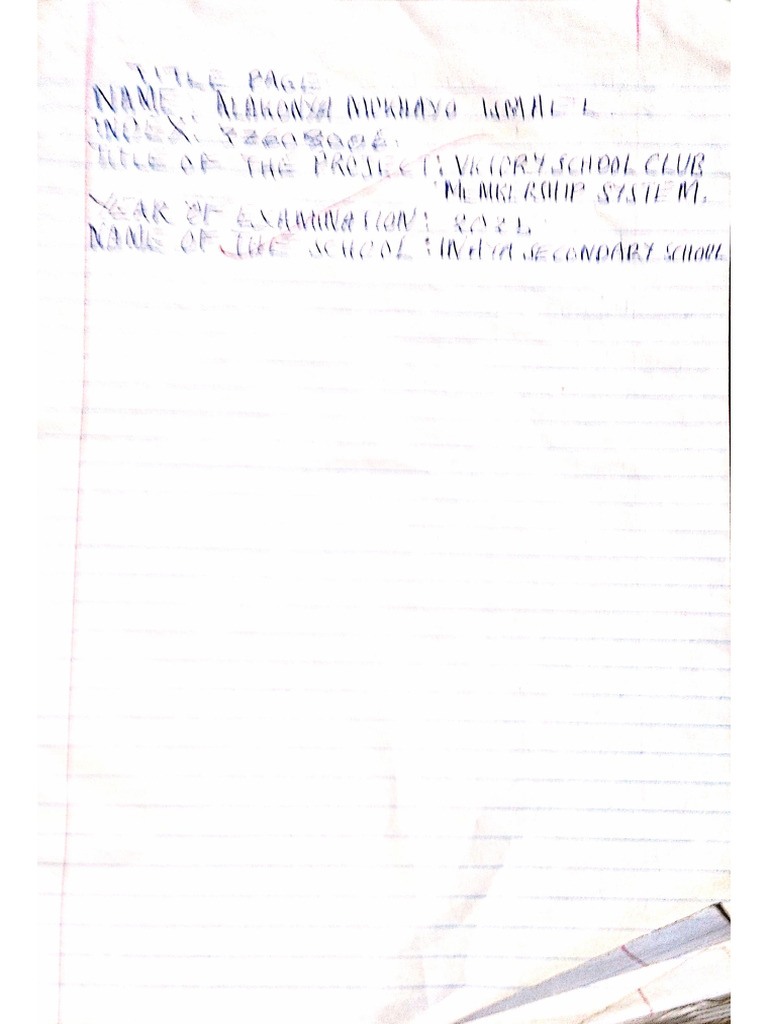 TITLE PAGE
NAME: ALAKONYA MUKHAYO
INDEX:
TITLE OF THE PROJECT: VICTORY SCHOOL CLUB
MEMBERSHIP SYSTEM.
YEAR OF EXAMINATION: 2021.
NAME OF THE SCHOOL: SECONDARY SCHOOL